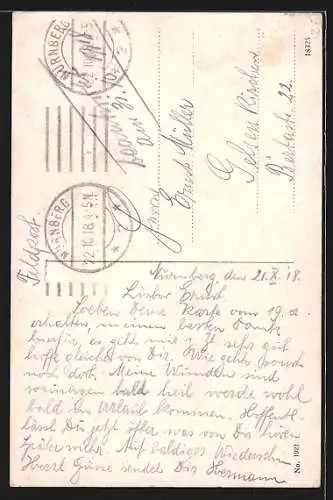 NÜRNBERG
22.10.18.4-5N.
NÜRNBERG
22 10 18. 4-5N.
Feldpost.
beantw.
am 31. 10.
Herrn
Ernst Müller
Gelsenkirchen
Bertastr. 22.
18325
Nürnberg, den 21.X.18.
Lieber Ernst.
Soeben Deine Karte vom 19. d.
erhalten, meinen besten Dank
hierfür, es geht mir z. Z. sehr gut
hoffe gleiches von Dir. Wie gehts sonst
noch dort. Meine Wunden sind
sozusagen bald heil werde wohl
bald in Urlaub kommen. Hoffentl.
lässt Du jetzt öfter was von Dir hören
später mehr. Auf baldiges Wiedersehn
Herzl Grüsse sendet Dir Hermann
No. 1921